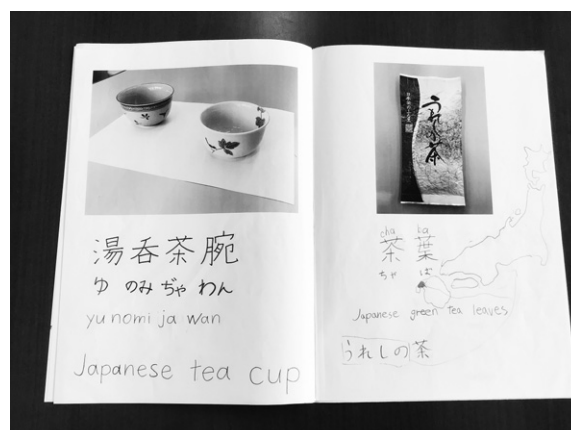 湯呑茶腕
ゆ のみ ぢゃ わん
yu nomi ja wan
Japanese tea cup
うれしの茶
cha ba
茶 葉
ちゃ ば
Japanese green tea leaves
うれしの茶